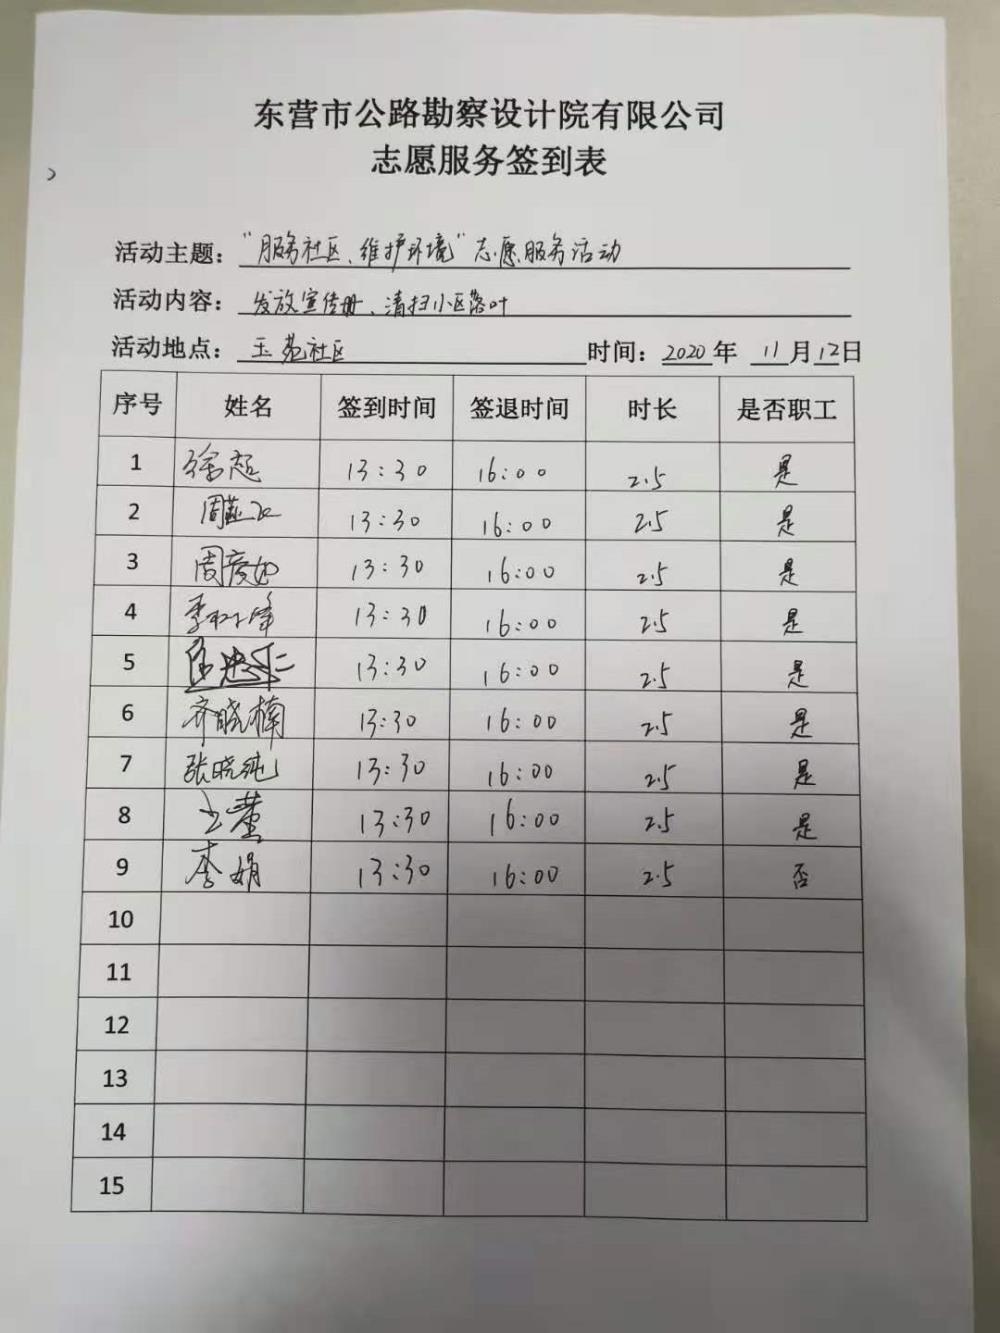 东营市公路勘察设计院有限公司
志愿服务签到表
活动主题："服务社区、维护环境"志愿服务活动
活动内容：发放宣传册、清扫小区落叶
活动地点：玉苑社区 时间：2020年 11月12日
序号 姓名 签到时间 签退时间 时长 是否职工
1 徐超 13:30 16:00 2.5 是
2 周 13:30 16:00 2.5 是
3 周庆 13:30 16:00 2.5 是
4 李 峰 13:30 16:00 2.5 是
5 13:30 16:00 2.5 是
6 齐晓楠 13:30 16:00 2.5 是
7 张晓纯 13:30 16:00 2.5 是
8 王 13:30 16:00 2.5 是
9 李娟 13:30 16:00 2.5 否
10
11
12
13
14
15